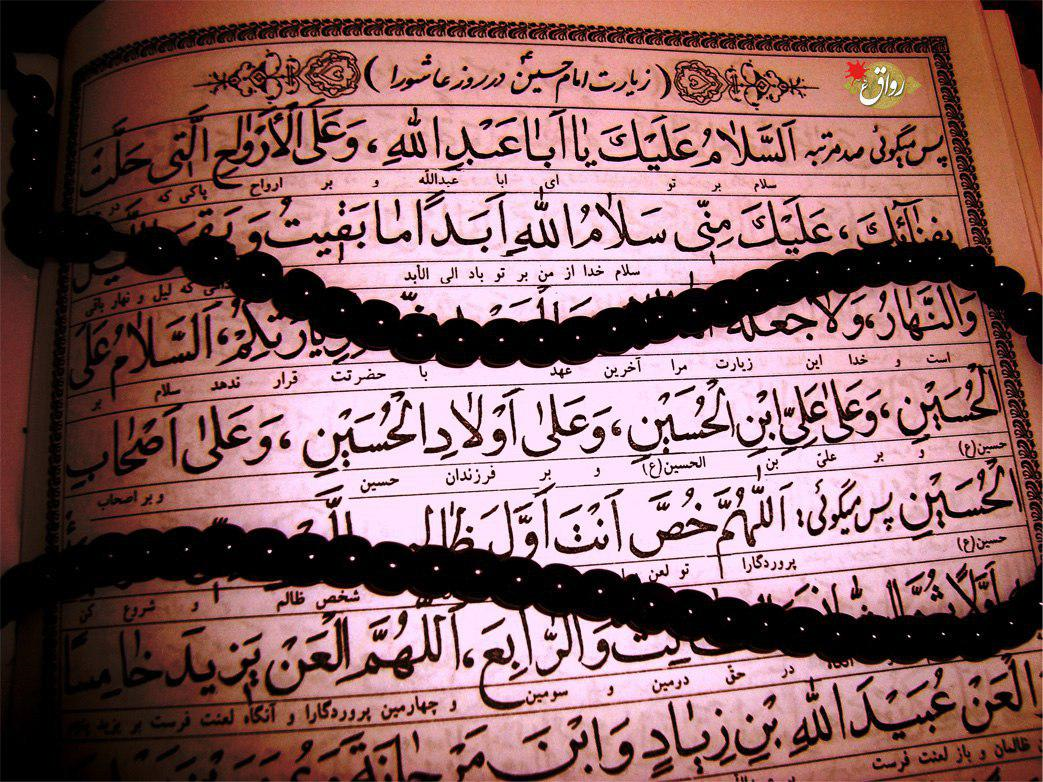 رواق
( زیارت امام حسین ع در روز عاشورا )
پس میگوئی صد مرتبه اَلسَّلامُ عَلَیْکَ یا اَبا عَبْدِ اللهِ، وَعَلَی الْاَرْواحِ الَّتی حَلَّتْ
سلام بر تو ای ابا عبدالله و بر ارواح پاکی که در
بِفِنائِکَ، عَلَیْکَ مِنّی سَلامُ اللهِ اَبَدًا ما بَقیتُ وَ بَقِیَ
سلام خدا از من بر تو باد الی الابد که لیل و نهار باقی
وَالنَّهارُ، وَلا جَعَلَهُ لِزِیارَتِکُمْ، اَلسَّلامُ عَلَی
است و خدا این زیارت مرا آخرین عهد با حضرتت قرار ندهد سلام بر
الْحُسَیْنِ، وَعَلی عَلِیِّ ابْنِ الْحُسَیْنِ، وَعَلی اَوْلادِ الْحُسَیْنِ، وَعَلی اَصْحابِ
حسین(ع) و بر علیّ بن الحسین(ع) و بر فرزندان حسین و بر اصحاب
الْحُسَیْنِ پس میگوئی: اَللّهُمَّ خُصَّ اَنْتَ اَوَّلَ ظالِمٍ
حسین(ع) پروردگارا تو لعن شخص ظالم و شروع کن
اَوَّلًا ثُمَّ وَالرّابِعَ، اَللّهُمَّ الْعَنْ یَزیدَ خامِسًا
در حق دومین و سومین و چهارمین پروردگارا و آنگاه لعنت فرست بر یزید پنجم
الْعَنْ عُبَیْدَ اللهِ بْنِ زِیادٍ وَابْنَ مَرْجانَةَ
ظالمان و باز لعنت فرست